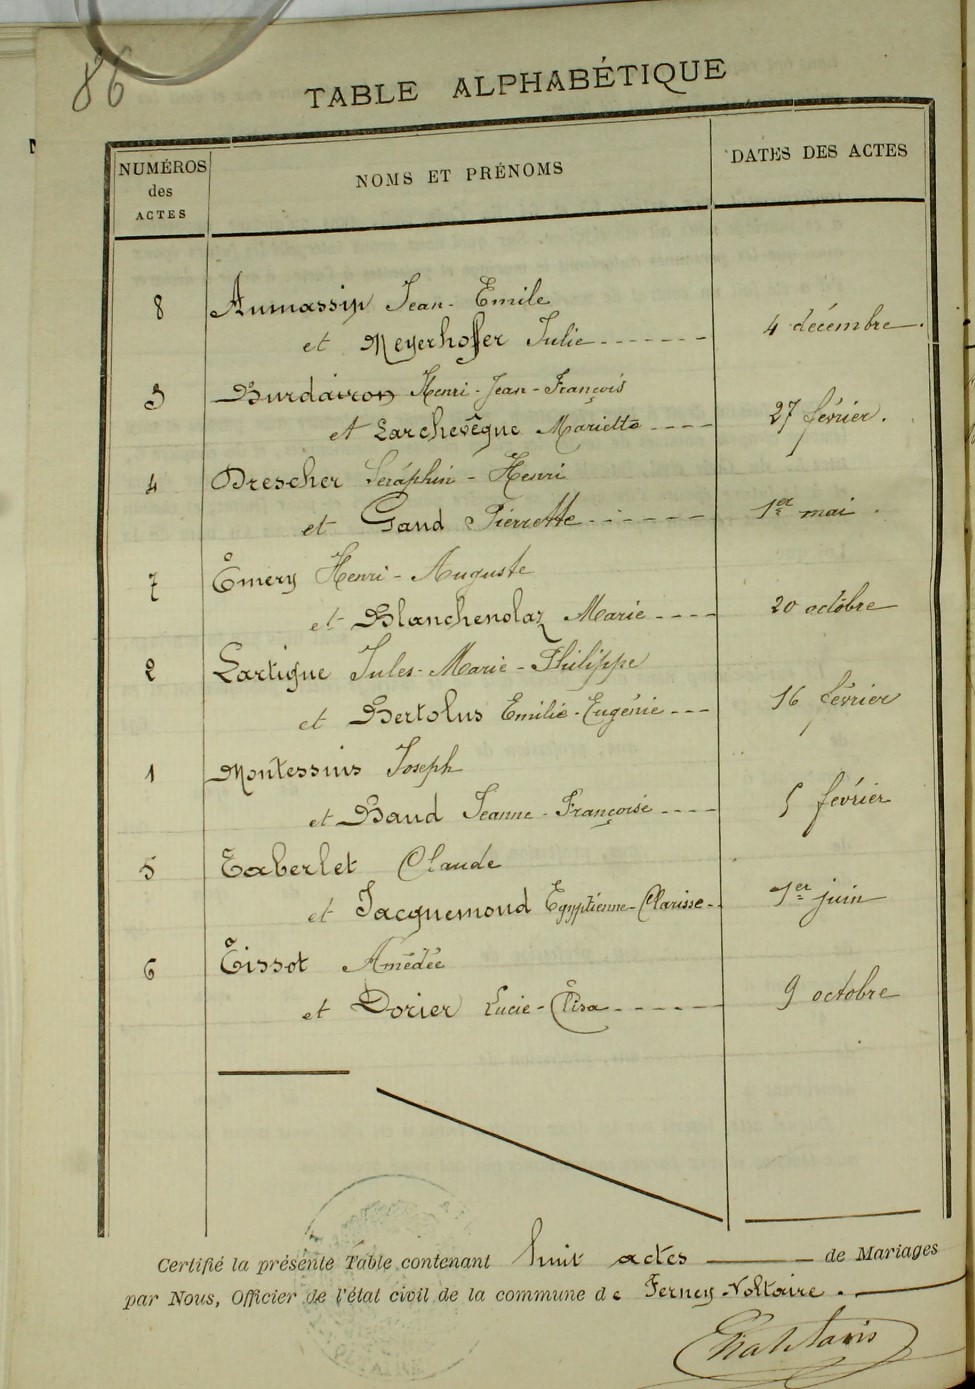 86
TABLE ALPHABÉTIQUE
NUMÉROS des ACTES
NOMS ET PRÉNOMS
DATES DES ACTES
8 Aumassip Jean-Emile
et Meyerhoffer Julie 4 décembre.
3 Burdairon Henri-Jean-François
et Larchevêque Mariette 27 février.
4 Drescher Séraphin-Henri
et Gand Pierrette 1er mai.
7 Emery Henri-Auguste
et Blanchenolaz Marie 20 octobre
2 Lartigue Jules-Marie-Philippe
et Bertolus Emilie-Eugénie 16 février
1 Montessuis Joseph
et Baud Jeanne-Françoise 5 février
5 Taberlet Claude
et Jacquemond Egyptienne-Clarisse 1er juin
6 Tissot Amédée
et Dorier Lucie-Elisa 9 octobre
Certifié la présente Table contenant huit actes de Mariages
par Nous, Officier de l'état civil de la commune de Ferney-Voltaire.